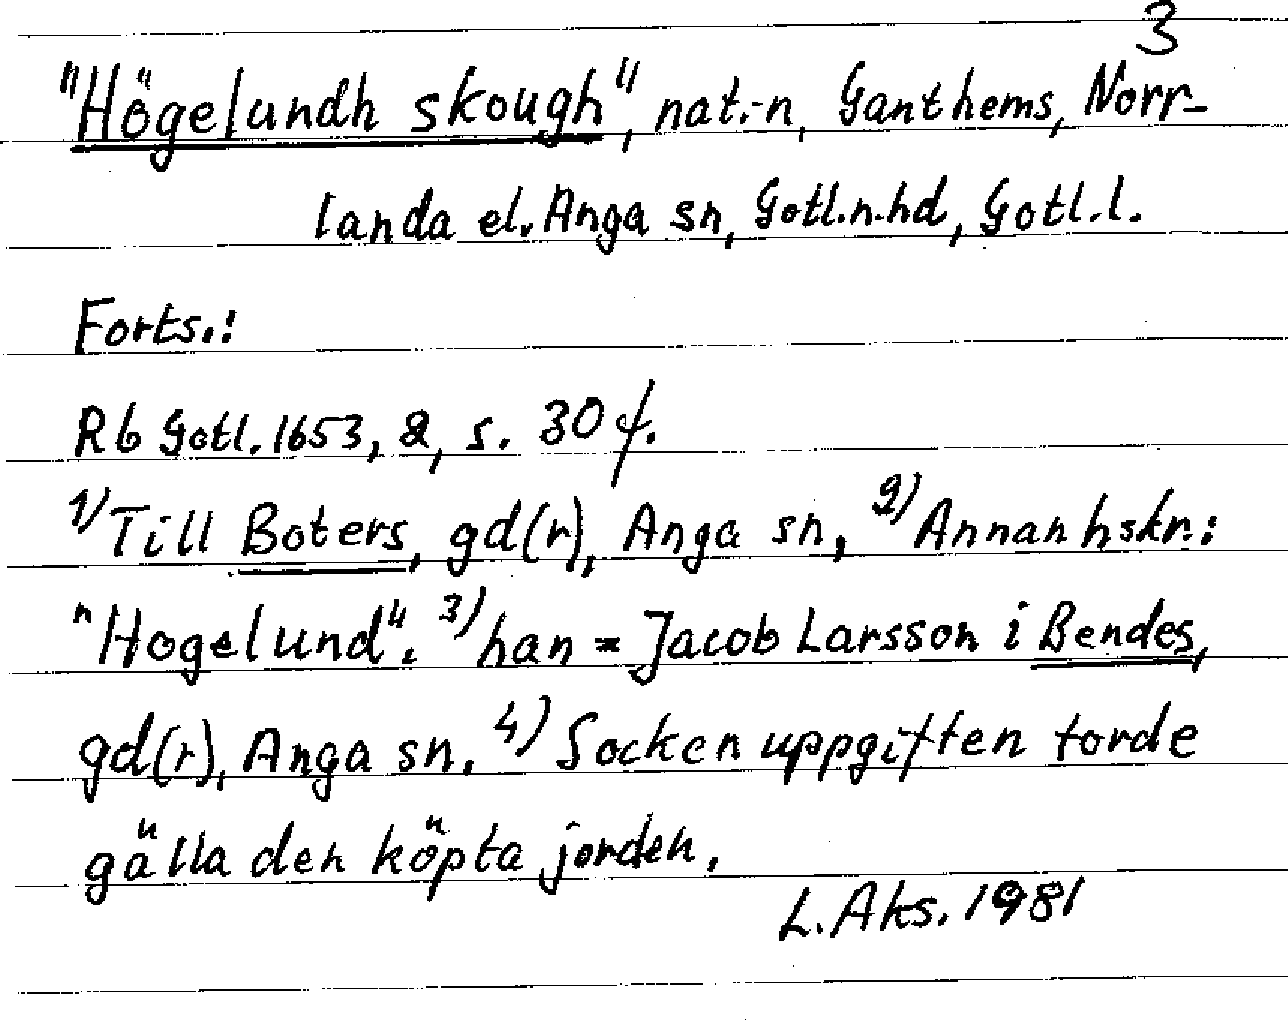 3
"Högelundh skough", nat.-n, Ganthems, Norr-
landa el. Anga sn, Gotl.n.hd, Gotl.l.
Forts.:
Rb Gotl. 1653, 2, s. 30 f.
1) Till Boters, gd(r), Anga sn, 2) Annan hskr.:
"Hogelund". 3) han = Jacob Larsson i Bendes,
gd(r), Anga sn. 4) Sockenuppgiften torde
gälla den köpta jorden.
L. Aks. 1981